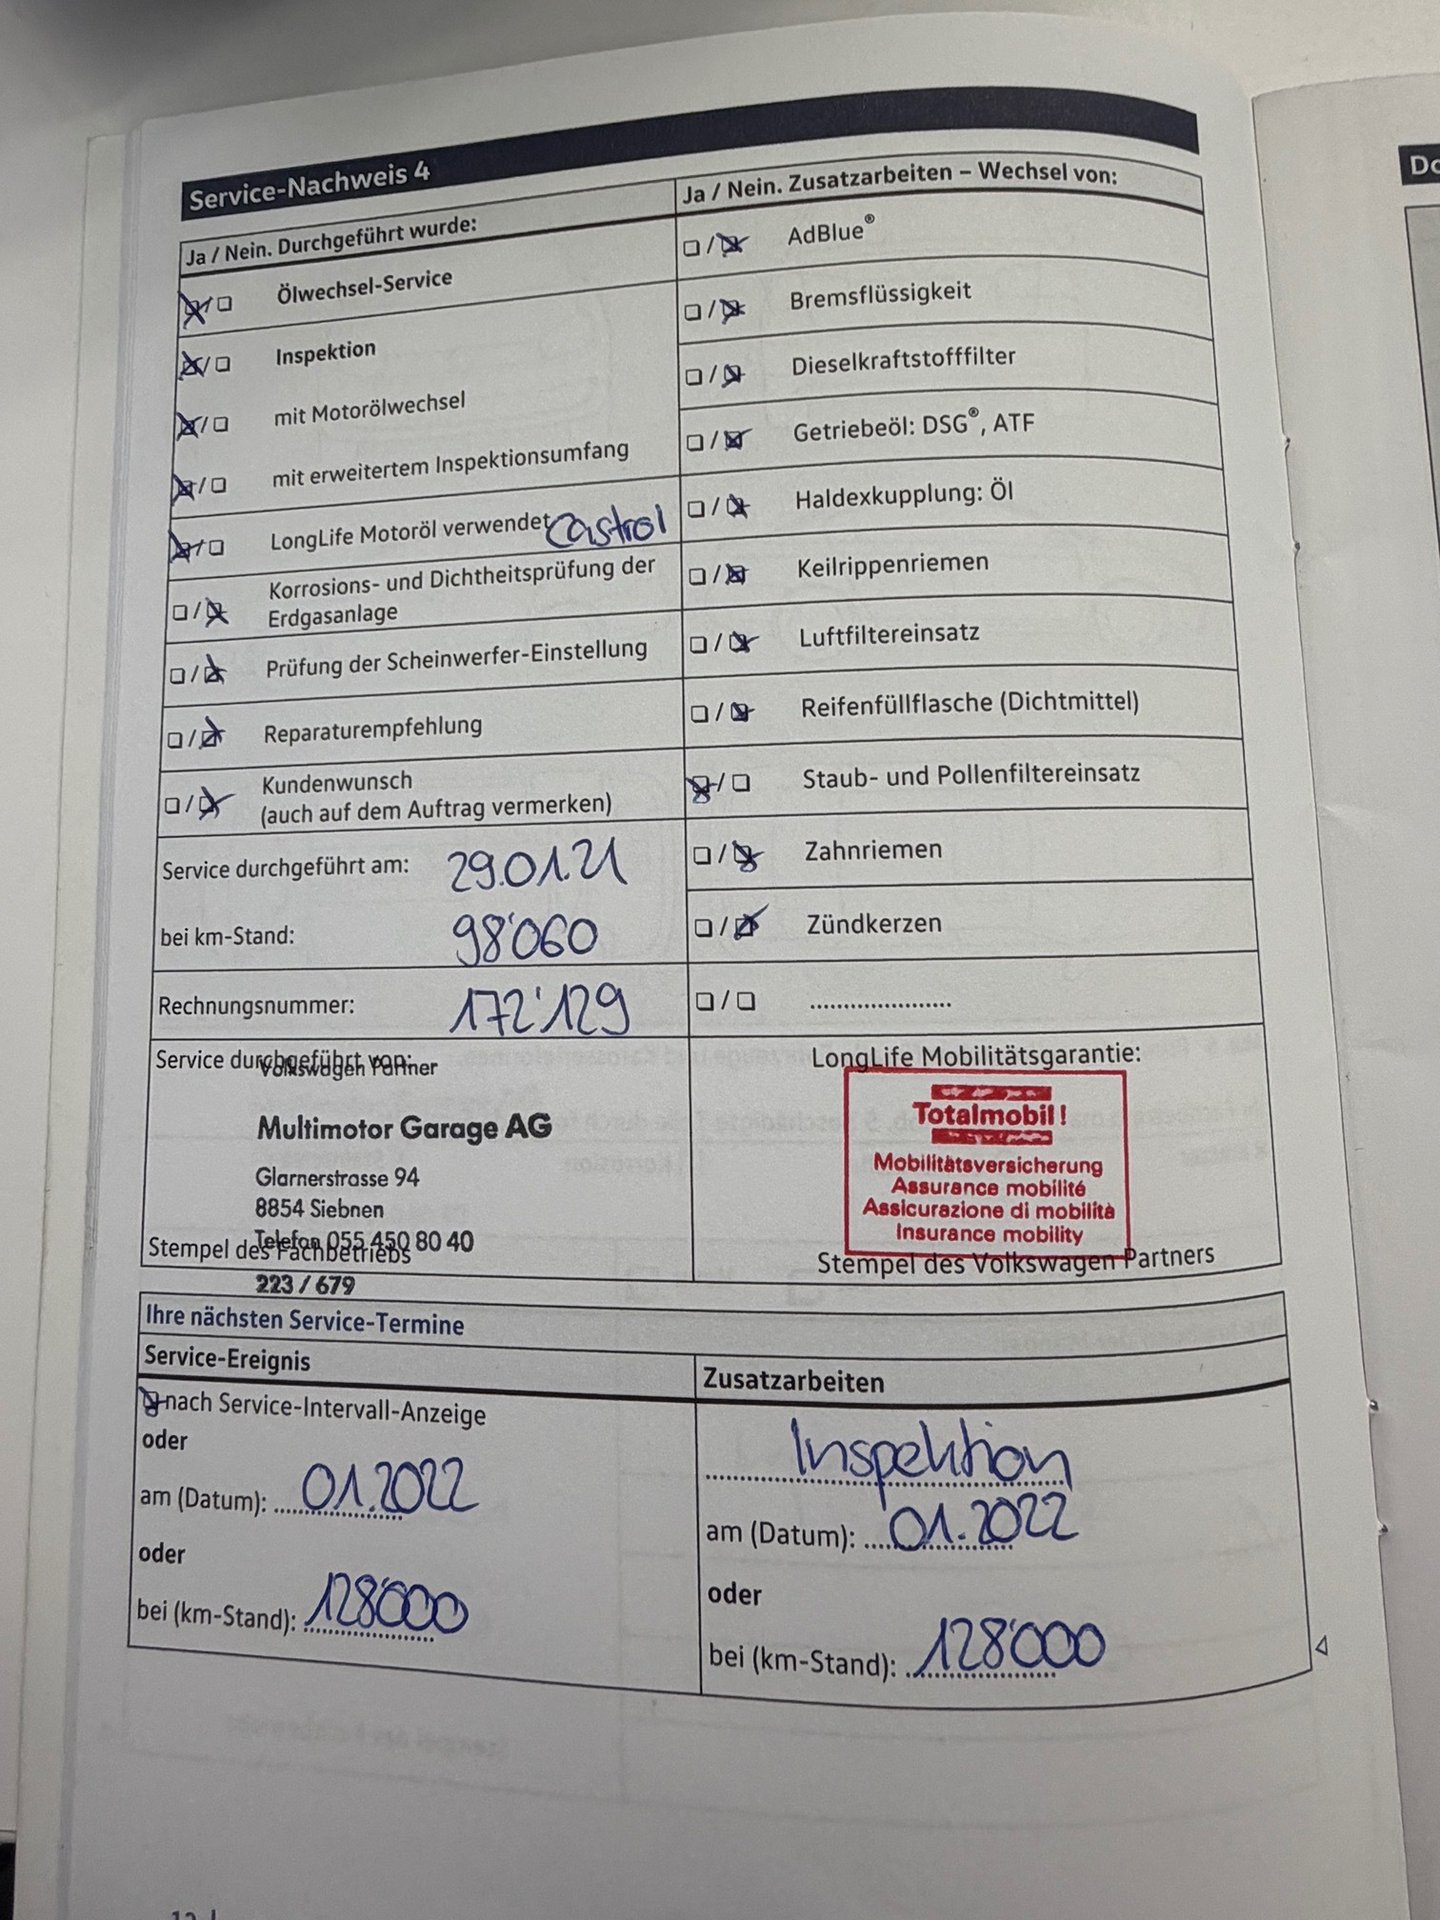 Service-Nachweis 4
Ja / Nein. Durchgeführt wurde:
☒/☐ Ölwechsel-Service
☒/☐ Inspektion
☒/☐ mit Motorölwechsel
☒/☐ mit erweitertem Inspektionsumfang
☒/☐ LongLife Motoröl verwendet Castrol
☐/☒ Korrosions- und Dichtheitsprüfung der
Erdgasanlage
☐/☒ Prüfung der Scheinwerfer-Einstellung
☐/☒ Reparaturempfehlung
☐/☒ Kundenwunsch
(auch auf dem Auftrag vermerken)
Service durchgeführt am: 29.01.21
bei km-Stand: 98'060
Rechnungsnummer: 172'129
Service durchgeführt von:
Volkswagen Partner
Multimotor Garage AG
Glarnerstrasse 94
8854 Siebnen
Telefon 055 450 80 40
Stempel des Fachbetriebs
223 / 679
Ja / Nein. Zusatzarbeiten – Wechsel von:
☐/☒ AdBlue®
☐/☒ Bremsflüssigkeit
☐/☒ Dieselkraftstofffilter
☐/☒ Getriebeöl: DSG®, ATF
☐/☒ Haldexkupplung: Öl
☐/☒ Keilrippenriemen
☐/☒ Luftfiltereinsatz
☐/☒ Reifenfüllflasche (Dichtmittel)
☒/☐ Staub- und Pollenfiltereinsatz
☐/☒ Zahnriemen
☐/☒ Zündkerzen
☐/☐ .....................
LongLife Mobilitätsgarantie:
Totalmobil!
Mobilitätsversicherung
Assurance mobilité
Assicurazione di mobilità
Insurance mobility
Stempel des Volkswagen Partners
Ihre nächsten Service-Termine
Service-Ereignis
☒ nach Service-Intervall-Anzeige
oder
am (Datum): 01.2022
oder
bei (km-Stand): 128'000
Zusatzarbeiten
Inspektion
am (Datum): 01.2022
oder
bei (km-Stand): 128'000